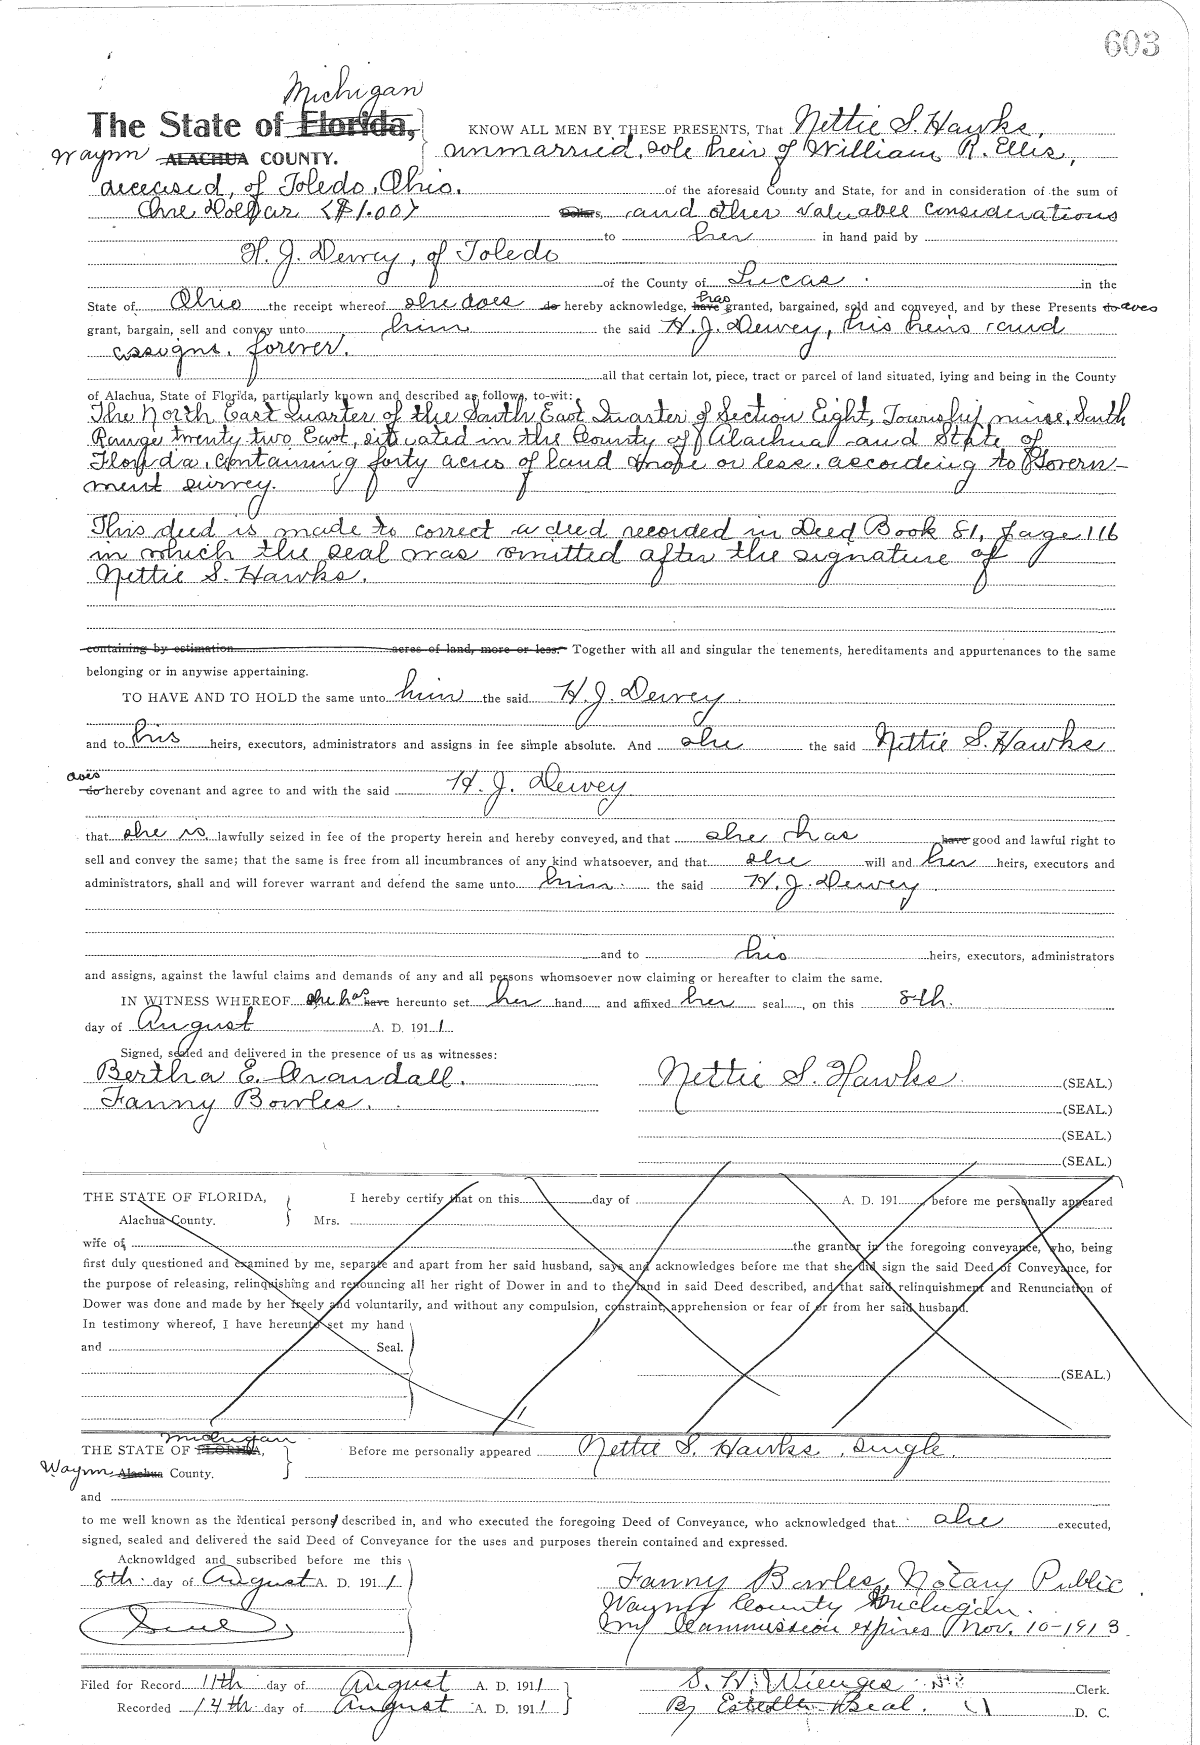 603
Michigan
The State of Florida, KNOW ALL MEN BY THESE PRESENTS, That Nettie S. Hawks,
Wayne ALACHUA COUNTY. unmarried, sole heir of William R. Ellis,
deceased, of Toledo, Ohio. of the aforesaid County and State, for and in consideration of the sum of
One Dollar ($1.00) Dollars, and other valuable considerations
to her in hand paid by
H. J. Dewey, of Toledo
of the County of Lucas in the
State of Ohio the receipt whereof she does do hereby acknowledge, has have granted, bargained, sold and conveyed, and by these Presents do does
grant, bargain, sell and convey unto him the said H. J. Dewey, his heirs and
assigns, forever.
all that certain lot, piece, tract or parcel of land situated, lying and being in the County
of Alachua, State of Florida, particularly known and described as follows, to-wit:
The North East Quarter of the South East Quarter of Section Eight, Township nine, South
Range twenty two East, situated in the County of Alachua and State of
Florida, containing forty acres of land more or less, according to Govern-
ment survey.
This deed is made to correct a deed recorded in Deed Book 81, page 116
in which the seal was omitted after the signature of
Nettie S. Hawks.
containing by estimation acres of land, more or less. Together with all and singular the tenements, hereditaments and appurtenances to the same
belonging or in anywise appertaining.
TO HAVE AND TO HOLD the same unto him the said H. J. Dewey
and to his heirs, executors, administrators and assigns in fee simple absolute. And she the said Nettie S. Hawks
does
do hereby covenant and agree to and with the said H. J. Dewey
that she is lawfully seized in fee of the property herein and hereby conveyed, and that she has have good and lawful right to
sell and convey the same; that the same is free from all incumbrances of any kind whatsoever, and that she will and her heirs, executors and
administrators, shall and will forever warrant and defend the same unto him the said H. J. Dewey
and to his heirs, executors, administrators
and assigns, against the lawful claims and demands of any and all persons whomsoever now claiming or hereafter to claim the same.
IN WITNESS WHEREOF she has have hereunto set her hand and affixed her seal, on this 8th.
day of August A. D. 1911
Signed, sealed and delivered in the presence of us as witnesses:
Bertha E. Crandall. Nettie S. Hawks (SEAL.)
Fanny Bowles. (SEAL.)
(SEAL.)
(SEAL.)
THE STATE OF FLORIDA, I hereby certify that on this day of A. D. 191 before me personally appeared
Alachua County. Mrs.
wife of the grantor in the foregoing conveyance, who, being
first duly questioned and examined by me, separate and apart from her said husband, says and acknowledges before me that she did sign the said Deed of Conveyance, for
the purpose of releasing, relinquishing and renouncing all her right of Dower in and to the land in said Deed described, and that said relinquishment and Renunciation of
Dower was done and made by her freely and voluntarily, and without any compulsion, constraint, apprehension or fear of or from her said husband.
In testimony whereof, I have hereunto set my hand
and Seal.
(SEAL.)
Michigan
THE STATE OF FLORIDA, Before me personally appeared Nettie S. Hawks, single.
Wayne Alachua County.
and
to me well known as the identical person described in, and who executed the foregoing Deed of Conveyance, who acknowledged that she executed,
signed, sealed and delivered the said Deed of Conveyance for the uses and purposes therein contained and expressed.
Acknowldged and subscribed before me this
8th. day of August A. D. 1911 Fanny Bowles, Notary Public
Seal Wayne County Michigan.
My Commission expires Nov. 10-1913.
Filed for Record 11th day of August A. D. 1911 S. H. Wienges Clerk.
Recorded 14th day of August A. D. 1911 By Beal. D. C.